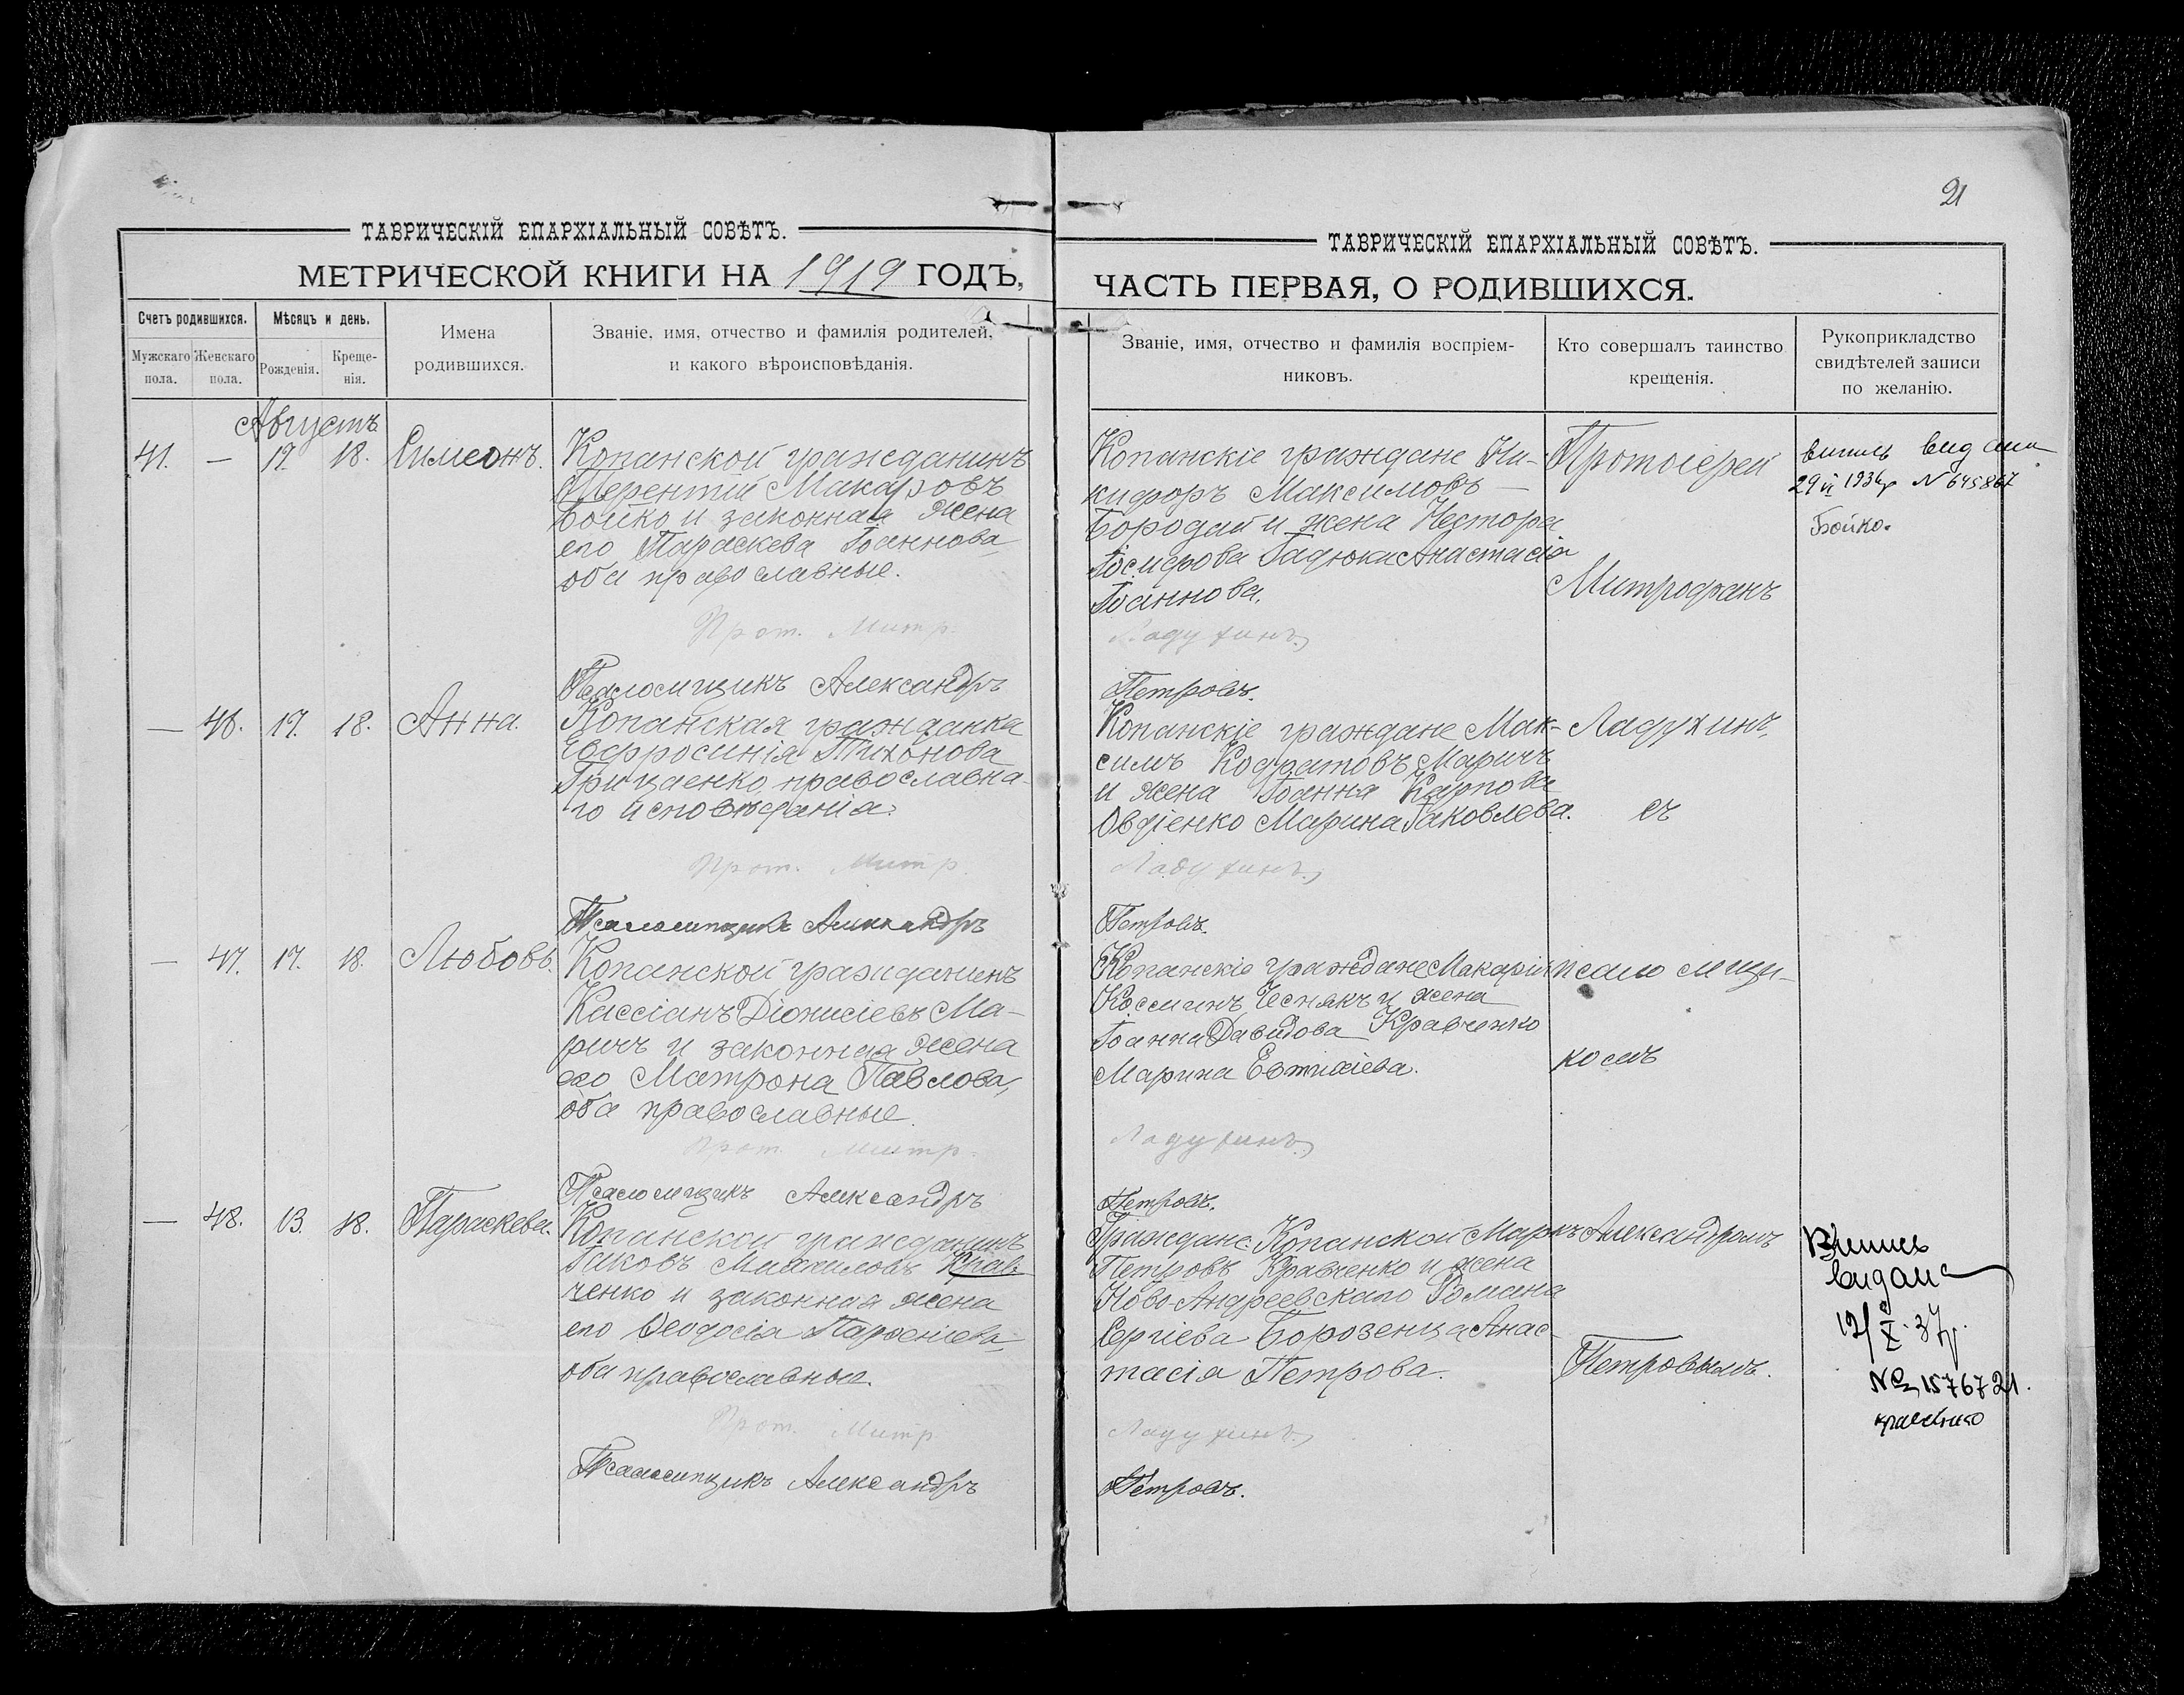 21
ТАВРИЧЕСКІЙ ЕПАРХІАЛЬНЫЙ СОВѢТЪ.
МЕТРИЧЕСКОЙ КНИГИ НА 1919 ГОДЪ,
Счетъ родившихся.
Мѣсяцъ и день.
Имена родившихся.
Званіе, имя, отчество и фамилія родителей,
и какого вѣроисповѣданія.
Мужскаго пола.
Женскаго пола.
Рожденія.
Креще-
нія.
Августъ
41. — 17. 18. Симеонъ.
Копанской гражданинъ
Терентій Макаровъ
Бойко и законная жена
его Параскева Іоаннова
оба православные.
Прот. Митр.
Псаломщикъ Александръ
— 46. 17. 18. Анна.
Копанская гражданка
Евфросинія Тихонова
Грицаенко, православна-
го исповѣданія.
Прот. Митр.
Псаломщикъ Александръ
— 47. 17. 18. Любовь.
Копанской гражданинъ
Кассіанъ Діонисіевъ Ма-
ричъ и законная жена
его Матрона Павлова,
оба православные.
Прот. Митр.
Псаломщикъ Александръ
— 48. 13. 18. Параскева.
Копанской гражданинъ
Іаковъ Михаиловъ Крав-
ченко и законная жена
его Ѳеодосія Парѳеніева
оба православные.
Прот. Митр.
Псаломщикъ Александръ
ТАВРИЧЕСКІЙ ЕПАРХІАЛЬНЫЙ СОВѢТЪ.
ЧАСТЬ ПЕРВАЯ, О РОДИВШИХСЯ.
Званіе, имя, отчество и фамилія воспріем-
никовъ.
Кто совершалъ таинство
крещенія.
Рукоприкладство
свидѣтелей записи
по желанію.
Копанскіе граждане Ни-
кифоръ Максимовъ
Бородай и жена Нестора
Іосифова Гадюка Анастасія
Іоаннова.
Ладухинъ
Петровъ.
Копанскіе граждане Мак-
симъ Маричъ
и жена Іоанна Карпова
Овдіенко Марина Іаковлева.
Ладухинъ
Петровъ.
Копанскіе граждане Макарій
Косминъ Чеснякъ и жена
Іоанна Давидова Кравченко
Марина Евтихіева.
Ладухинъ
Петровъ.
Граждане: Копанской Маркъ
Петровъ Кравченко и жена
Ново-Андреевскаго Романа
Сергіева Борозенца Анас-
тасія Петрова.
Ладухинъ
Петровъ.
Протоіерей
Митрофанъ
Ладухинъ,
съ
псаломщи-
комъ
Александромъ
Петровымъ.
випись видана
N 645867
Бойко.
Випись
видана
12/X.37р.
№ 1576721.